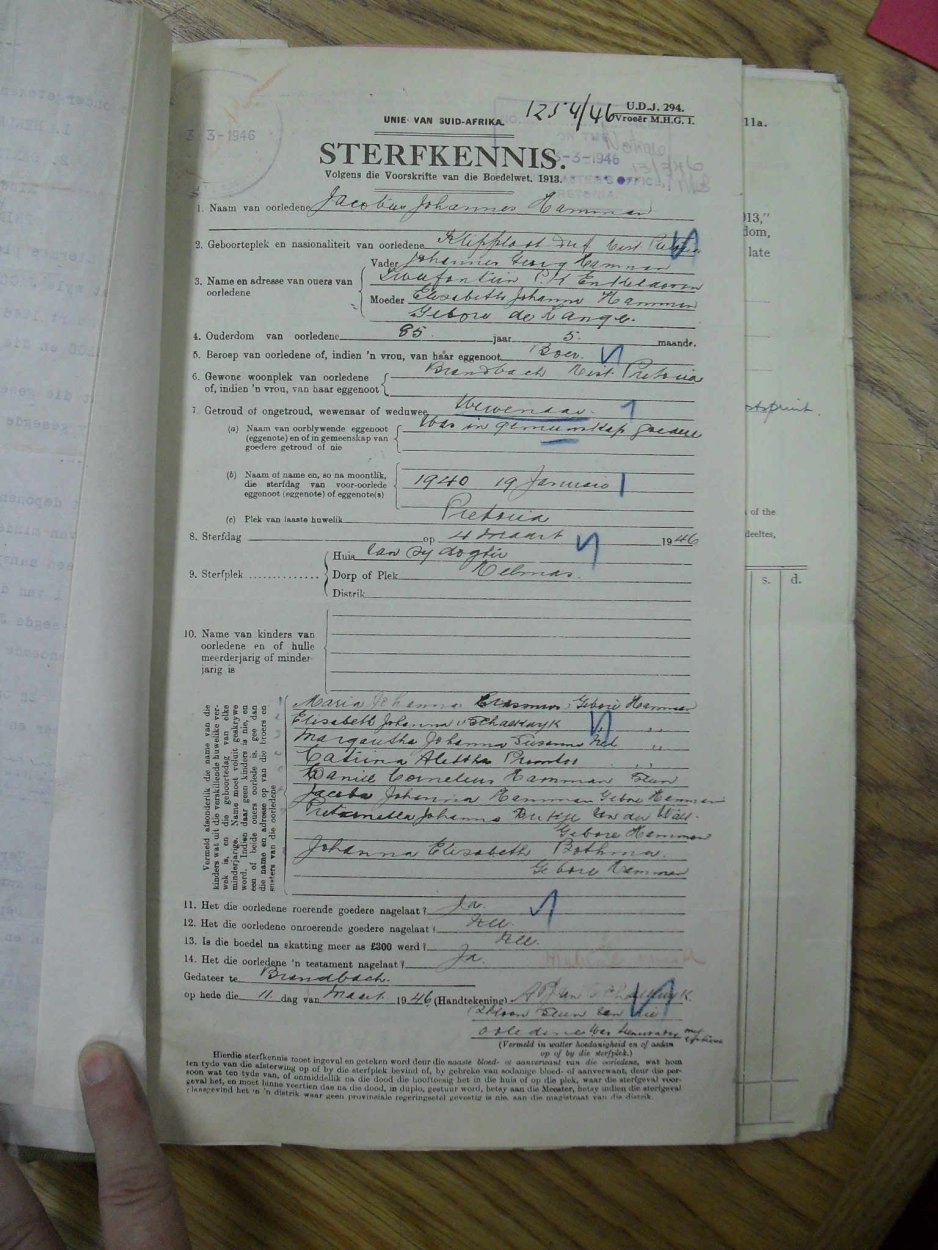 1254/46
U.D.J. 294.
Vroeër M.H.G. 1.
3-3-1946
UNIE VAN SUID-AFRIKA.
STERFKENNIS.
Volgens die Voorskrifte van die Boedelwet, 1913.
-3-1946
1. Naam van oorledene Jacobus Johannes Hamman
2. Geboorteplek en nasionaliteit van oorledene
3. Name en adresse van ouers van oorledene
Vader Johannes Georg Hamman
P.K. Enkeldoorn
Moeder Elisabeth Johanna Hamman
Gebore de Lange.
4. Ouderdom van oorledene 85 jaar 5. maande.
5. Beroep van oorledene of, indien 'n vrou, van haar eggenoot Boer.
6. Gewone woonplek van oorledene of, indien 'n vrou, van haar eggenoot
Brandbach Dist Pretoria
7. Getroud of ongetroud, wewenaar of weduwee Wewenaar.
(a) Naam van oorblywende eggenoot (eggenote) en of in gemeenskap van goedere getroud of nie
Was in gemeenskap goedere
(b) Naam of name en, so na moontlik, die sterfdag van voor-oorlede eggenoot (eggenote) of eggenote(s)
1940 19 Januarie
(c) Plek van laaste huwelik Pretoria
8. Sterfdag op 4 Maart 1946
9. Sterfplek
Huis van sy dogter
Dorp of Plek Delmas.
Distrik
10. Name van kinders van oorledene en of hulle meerderjarig of minderjarig is
Vermeld afsonderlik die name van die kinders wat uit die verskillende huwelike verwek is, en die geboortedag van elke minderjarige. Name moet voluit geskrywe word. Indien daar geen kinders is nie, en een of beide ouers oorlede is, gee dan die name en adresse op van die broers en susters van die oorledene
Maria Johanna Erasmus Gebore Hamman
Elisabeth Johanna v Schalkwyk " "
Margaretha Johanna Susanna Nel " "
Catrina Aletta " "
Daniel Cornelius Hamman Seun
Jacoba Johanna Hamman Gebore Hamman
Johanna van der Walt
Gebore Hamman
Johanna Elisabeth Bothma.
Gebore Hamman
11. Het die oorledene roerende goedere nagelaat? Ja.
12. Het die oorledene onroerende goedere nagelaat? Nee.
13. Is die boedel na skatting meer as £300 werd? Nee.
14. Het die oorledene 'n testament nagelaat? Ja.
Gedateer te Brandbach.
op hede die 11 dag van Maart 1946 (Handtekening)
Seun van die
oorledene
(Vermeld in watter hoedanigheid en of aldan op of by die sterfplek.)
Hierdie sterfkennis moet ingevul en geteken word deur die naaste bloed- of aanverwant van die oorledene, wat hom
ten tyde van die afsterwing op of by die sterfplek bevind of, by gebreke van sodanige bloed- of aanverwant, deur die per-
soon wat ten tyde van, of onmiddellik na die dood die hooftoesig het in die huis of op die plek, waar die sterfgeval voor-
geval het, en moet binne veertien dae na die dood, in duplo, gestuur word, betsy aan die Meester, betsy indien die sterfgeval
plaasgevind het in 'n distrik waar geen provinsiale regeringsetel gevestig is nie, aan die magistraat van die distrik.
11a.
13,"
dom,
late
of the
deeltes,
s. d.